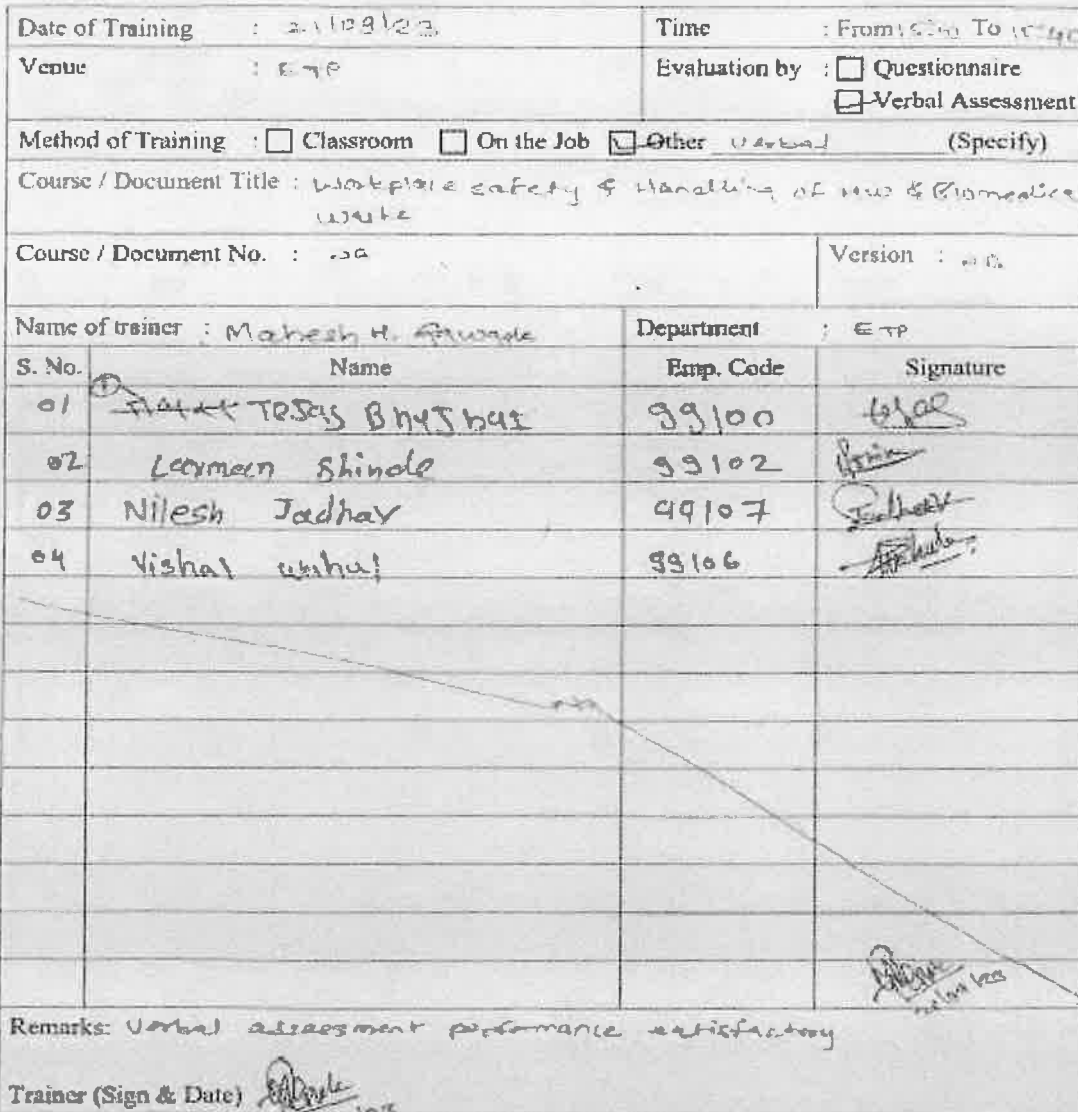 Date of Training : 21/09/23 Time : From To
Venue : ETP Evaluation by : Questionnaire
Verbal Assessment
Method of Training : Classroom On the Job Other Verbal (Specify)
Course / Document Title : Workplace safety & Handling of HW & Biomedica
waste
Course / Document No. : NA Version : NA
Name of trainer : Mahesh H. Department : ETP
S. No. Name Emp. Code Signature
01 Tejas Bhujbal 99100
02 Laxman Shinde 99102
03 Nilesh Jadhav 99107
04 Vishal 99106
Remarks: Verbal assessment performance satisfactory
Trainer (Sign & Date)